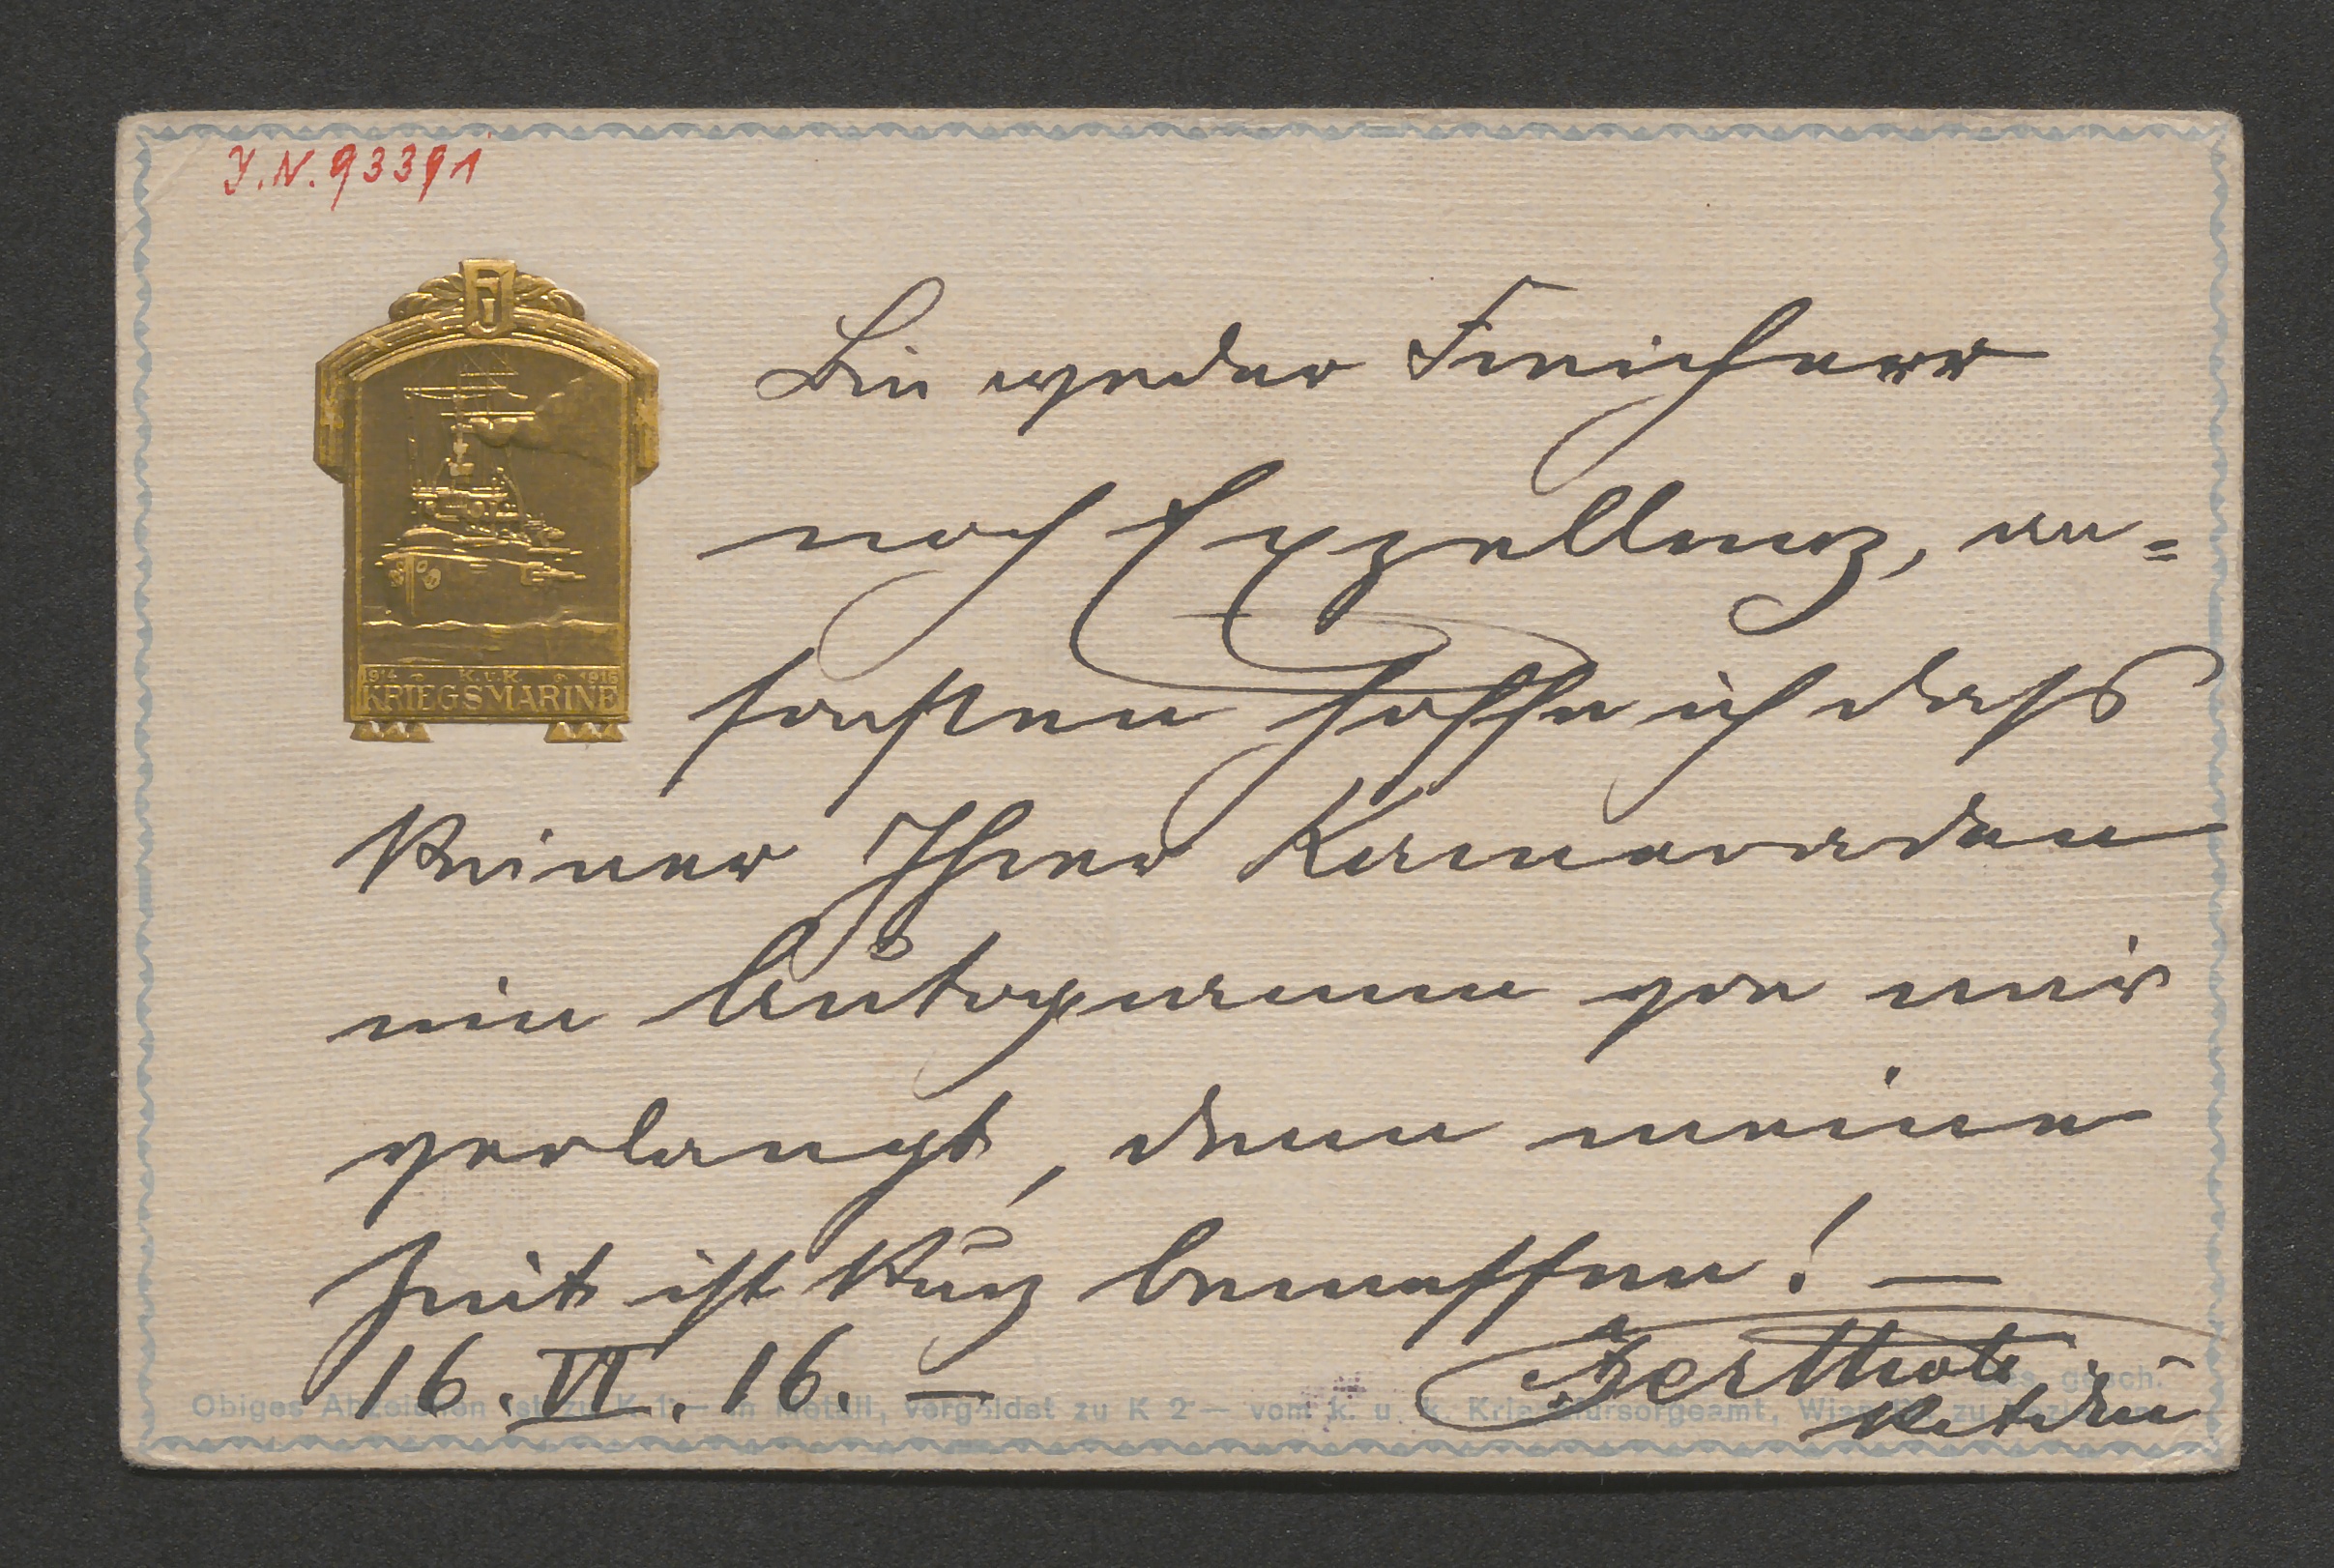 J.N. 93391
FJI
1914 K.u.K. 1916
KRIEGSMARINE
Bin weder Freiherr
noch Exzellenz, an=
sonsten hoffe ich daß
keiner Ihrer Kameraden
ein Autogramm von mir
verlangt, denn meine
Zeit ist kurz bemessen! —
16. VI. 16. —
Obiges Abzeichen ist zu K 1 — in Metall, vergoldet zu K 2 — vom k. u. k. Kriegsfürsorgeamt, Wien